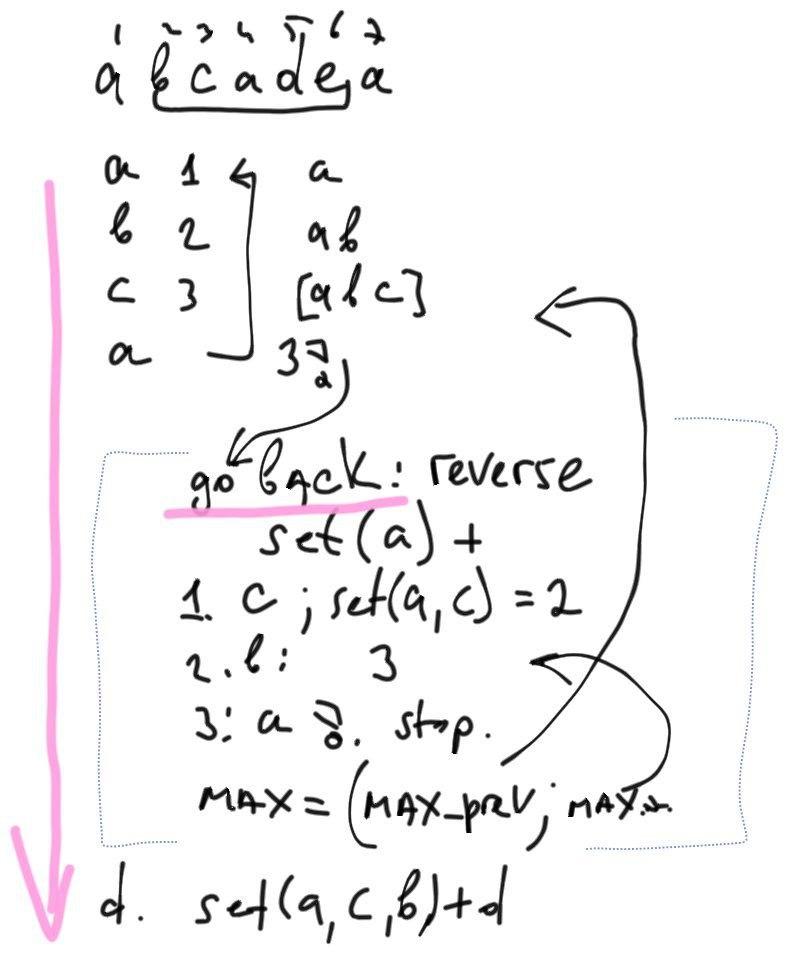 1 2 3 4 5 6 7
a b c a d e a
a 1 a
b 2 a b
c 3 [a b c]
a 3
go back: reverse
set(a) +
1. c ; set(a, c) = 2
2. b: 3
3: a stop.
MAX = (MAX_prev; MAX
d. set(a, c, b) + d